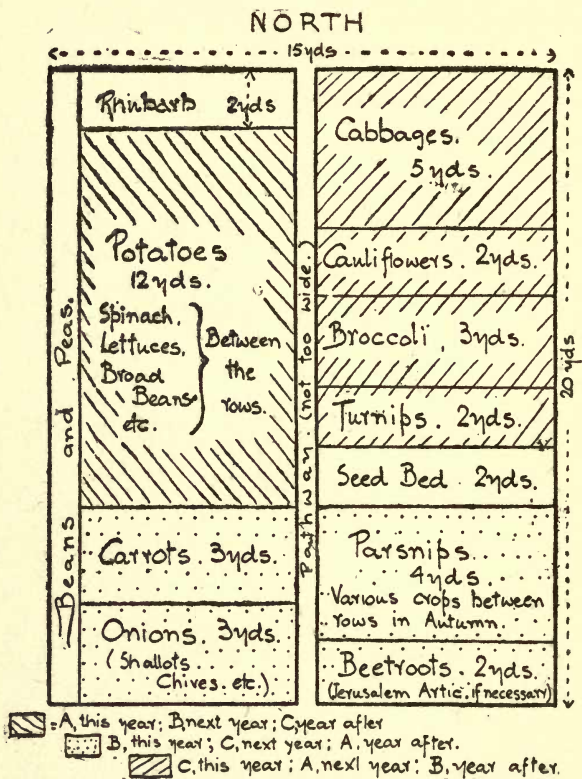 NORTH
15yds
Rhubarb 2yds
Potatoes
12yds.
Spinach,
Lettuces,
Broad
Beans
etc.
Between
the
rows.
Carrots. 3yds.
Onions. 3yds.
(Shallots
Chives. etc.)
Beans and Peas.
Pathway (not too wide.)
Cabbages.
5yds.
Cauliflowers. 2yds.
Broccoli, 3yds.
Turnips. 2yds.
Seed Bed 2yds.
Parsnips
4yds
Various crops between
rows in Autumn.
Beetroots. 2yds.
(Jerusalem Artic. if necessary)
20 yds
= A, this year; B, next year; C, year after
B, this year; C, next year; A, year after.
C, this year; A, next year; B, year after.